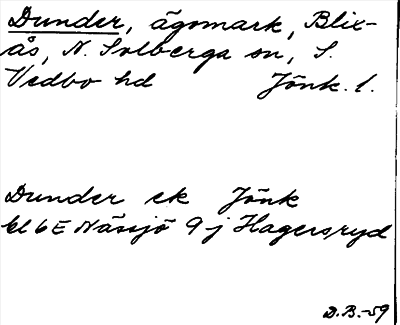 Dunder, ägomark, Blix-
ås, N. Solberga sn, S.
Vedbo hd Jönk. l.
Dunder ek Jönk
bl 6E Nässjö 9 j Hagersryd
D.B.-59